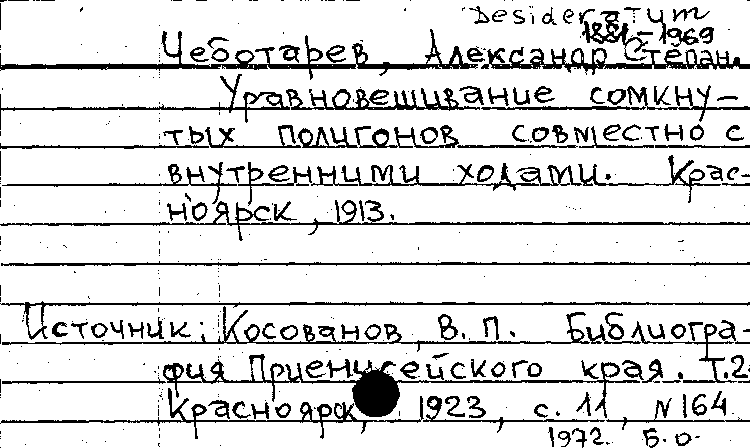 Desideratum
1881-1969
Чеботарев, Александр Степан.
Уравновешивание сомкну-
тых полигонов совместно с
внутренними ходами. Крас-
ноярск, 1913.
Источник: Косованов, В. П. Библиогра-
фия Приенисейского края. Т.2
Красноярск, 1923, с. 11, N 164
1972. Б.О.